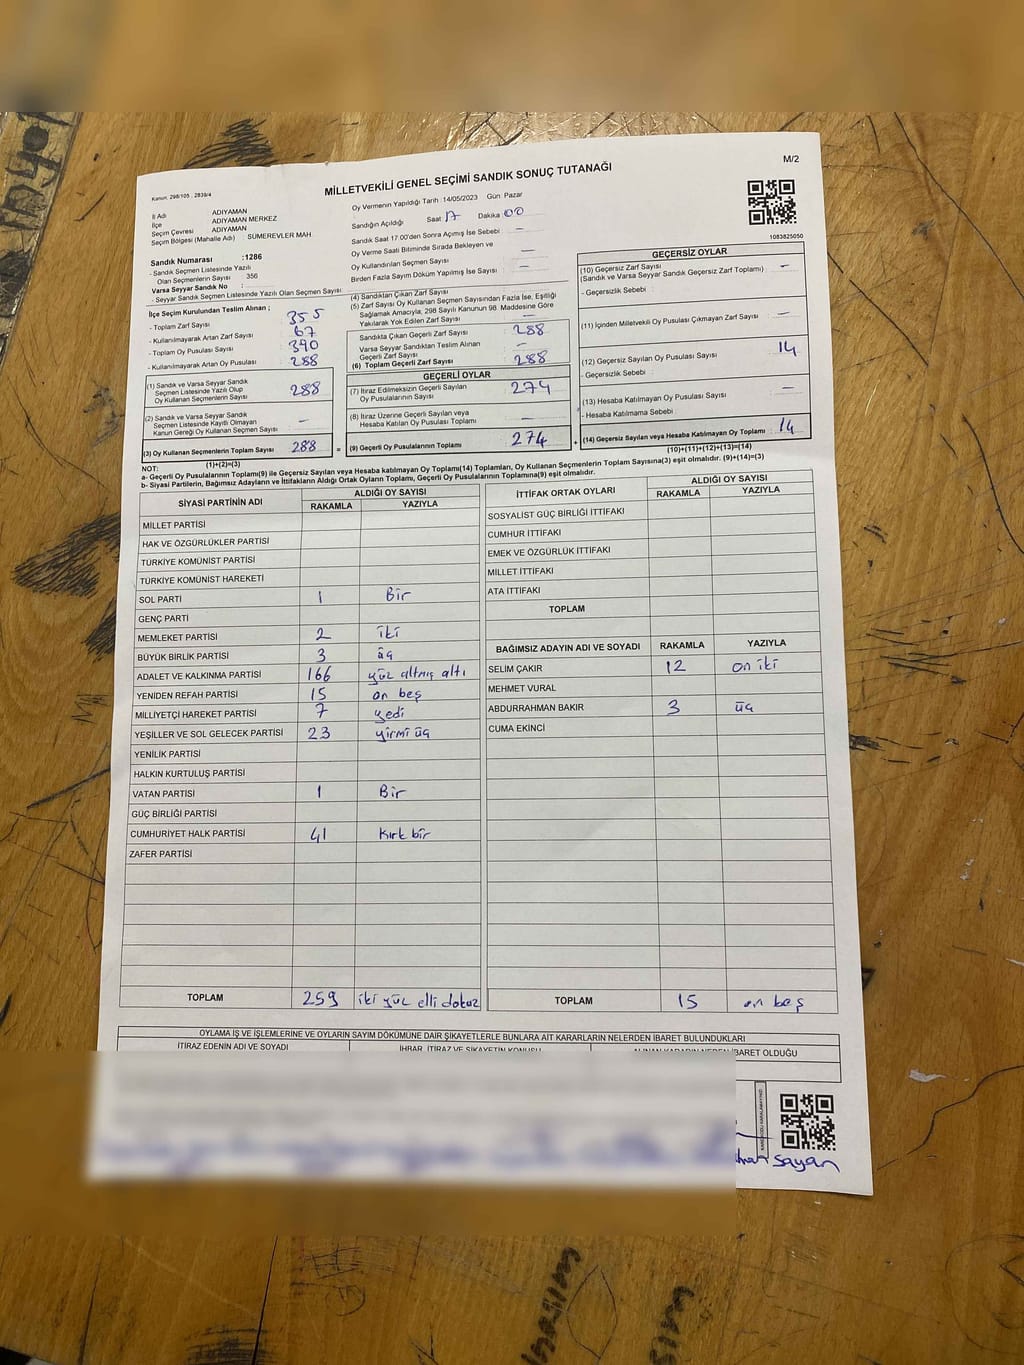 M/2
MİLLETVEKİLİ GENEL SEÇİMİ SANDIK SONUÇ TUTANAĞI
Kanun: 298/105 , 2839/4
Oy Vermenin Yapıldığı Tarih :14/05/2023 Gün: Pazar
İl Adı ADIYAMAN
İlçe ADIYAMAN MERKEZ
Seçim Çevresi ADIYAMAN
Seçim Bölgesi (Mahalle Adı) : SÜMEREVLER MAH.
Sandığın Açıldığı Saat 17 Dakika 00
Sandık Saat 17.00'den Sonra Açılmış İse Sebebi : –
Oy Verme Saati Bitiminde Sırada Bekleyen ve
Oy Kullandırılan Seçmen Sayısı –
Birden Fazla Sayım Döküm Yapılmış İse Sayısı : –
1083825050
Sandık Numarası :1286
- Sandık Seçmen Listesinde Yazılı
Olan Seçmenlerin Sayısı 356
Varsa Seyyar Sandık No :
- Seyyar Sandık Seçmen Listesinde Yazılı Olan Seçmen Sayısı :
İlçe Seçim Kurulundan Teslim Alınan ;
- Toplam Zarf Sayısı 355
- Kullanılmayarak Artan Zarf Sayısı 67
- Toplam Oy Pusulası Sayısı 390
- Kullanılmayarak Artan Oy Pusulası 288
(1) Sandık ve Varsa Seyyar Sandık
Seçmen Listesinde Yazılı Olup
Oy Kullanan Seçmenlerin Sayısı 288
(2) Sandık ve Varsa Seyyar Sandık
Seçmen Listesinde Kayıtlı Olmayan
Kanun Gereği Oy Kullanan Seçmen Sayısı –
(3) Oy Kullanan Seçmenlerin Toplam Sayısı 288
(1)+(2)=(3)
(4) Sandıktan Çıkan Zarf Sayısı
(5) Zarf Sayısı Oy Kullanan Seçmen Sayısından Fazla İse, Eşitliği
Sağlamak Amacıyla, 298 Sayılı Kanunun 98. Maddesine Göre
Yakılarak Yok Edilen Zarf Sayısı –
Sandıkta Çıkan Geçerli Zarf Sayısı 288
Varsa Seyyar Sandıktan Teslim Alınan
Geçerli Zarf Sayısı –
(6) Toplam Geçerli Zarf Sayısı 288
GEÇERLİ OYLAR
(7) İtiraz Edilmeksizin Geçerli Sayılan
Oy Pusulalarının Sayısı 274
(8) İtiraz Üzerine Geçerli Sayılan veya
Hesaba Katılan Oy Pusulası Toplamı –
= (9) Geçerli Oy Pusulalarının Toplamı 274
GEÇERSİZ OYLAR
(10) Geçersiz Zarf Sayısı
(Sandık ve Varsa Seyyar Sandık Geçersiz Zarf Toplamı) –
- Geçersizlik Sebebi :
(11) İçinden Milletvekili Oy Pusulası Çıkmayan Zarf Sayısı –
(12) Geçersiz Sayılan Oy Pusulası Sayısı 14
- Geçersizlik Sebebi :
(13) Hesaba Katılmayan Oy Pusulası Sayısı –
- Hesaba Katılmama Sebebi :
+ (14) Geçersiz Sayılan veya Hesaba Katılmayan Oy Toplamı 14
(10)+(11)+(12)+(13)=(14)
NOT:
a- Geçerli Oy Pusulalarının Toplamı(9) ile Geçersiz Sayılan veya Hesaba katılmayan Oy Toplamı(14) Toplamları, Oy Kullanan Seçmenlerin Toplam Sayısına(3) eşit olmalıdır. (9)+(14)=(3)
b- Siyasi Partilerin, Bağımsız Adayların ve İttifakların Aldığı Ortak Oyların Toplamı, Geçerli Oy Pusulalarının Toplamına(9) eşit olmalıdır.
SİYASİ PARTİNİN ADI ALDIĞI OY SAYISI
RAKAMLA YAZIYLA
MİLLET PARTİSİ
HAK VE ÖZGÜRLÜKLER PARTİSİ
TÜRKİYE KOMÜNİST PARTİSİ
TÜRKİYE KOMÜNİST HAREKETİ
SOL PARTİ 1 Bir
GENÇ PARTİ
MEMLEKET PARTİSİ 2 iki
BÜYÜK BİRLİK PARTİSİ 3 üç
ADALET VE KALKINMA PARTİSİ 166 yüz altmış altı
YENİDEN REFAH PARTİSİ 15 on beş
MİLLİYETÇİ HAREKET PARTİSİ 7 yedi
YEŞİLLER VE SOL GELECEK PARTİSİ 23 yirmi üç
YENİLİK PARTİSİ
HALKIN KURTULUŞ PARTİSİ
VATAN PARTİSİ 1 Bir
GÜÇ BİRLİĞİ PARTİSİ
CUMHURİYET HALK PARTİSİ 41 kırk bir
ZAFER PARTİSİ
TOPLAM 259 iki yüz elli dokuz
İTTİFAK ORTAK OYLARI ALDIĞI OY SAYISI
RAKAMLA YAZIYLA
SOSYALİST GÜÇ BİRLİĞİ İTTİFAKI
CUMHUR İTTİFAKI
EMEK VE ÖZGÜRLÜK İTTİFAKI
MİLLET İTTİFAKI
ATA İTTİFAKI
TOPLAM
BAĞIMSIZ ADAYIN ADI VE SOYADI RAKAMLA YAZIYLA
SELİM ÇAKIR 12 on iki
MEHMET VURAL
ABDURRAHMAN BAKIR 3 üç
CUMA EKİNCİ
TOPLAM 15 on beş
OYLAMA İŞ VE İŞLEMLERİNE VE OYLARIN SAYIM DÖKÜMÜNE DAİR ŞİKAYETLERLE BUNLARA AİT KARARLARIN NELERDEN İBARET BULUNDUKLARI
İTİRAZ EDENİN ADI VE SOYADI İHBAR, İTİRAZ VE ŞİKAYETİN KONUSU ALINAN KARARIN NEDEN İBARET OLDUĞU
sayan